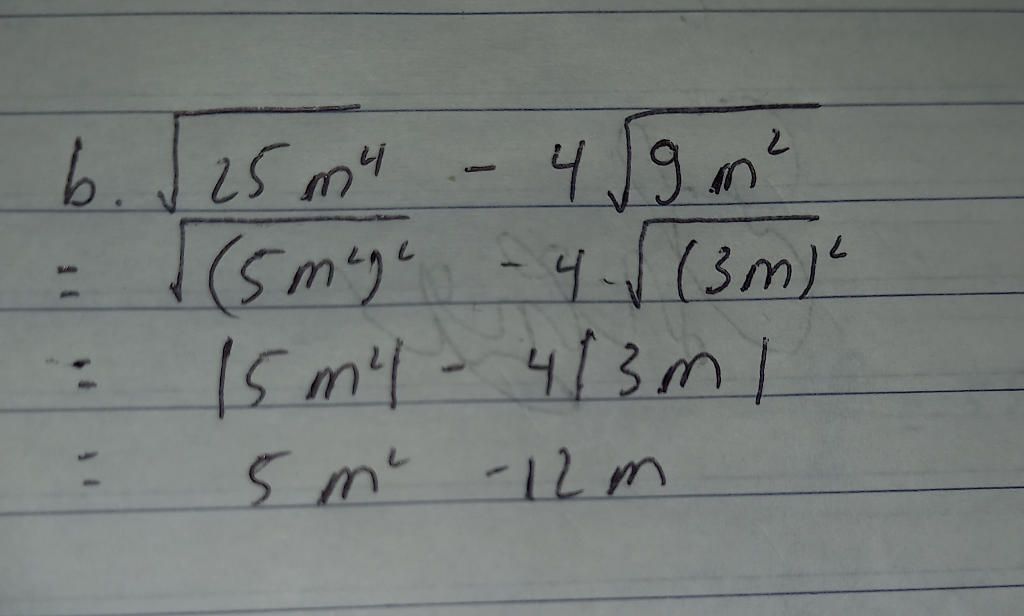 b. √25m⁴ - 4√9m²
= √(5m²)² - 4·√(3m)²
= |5m²| - 4|3m|
= 5m² - 12m